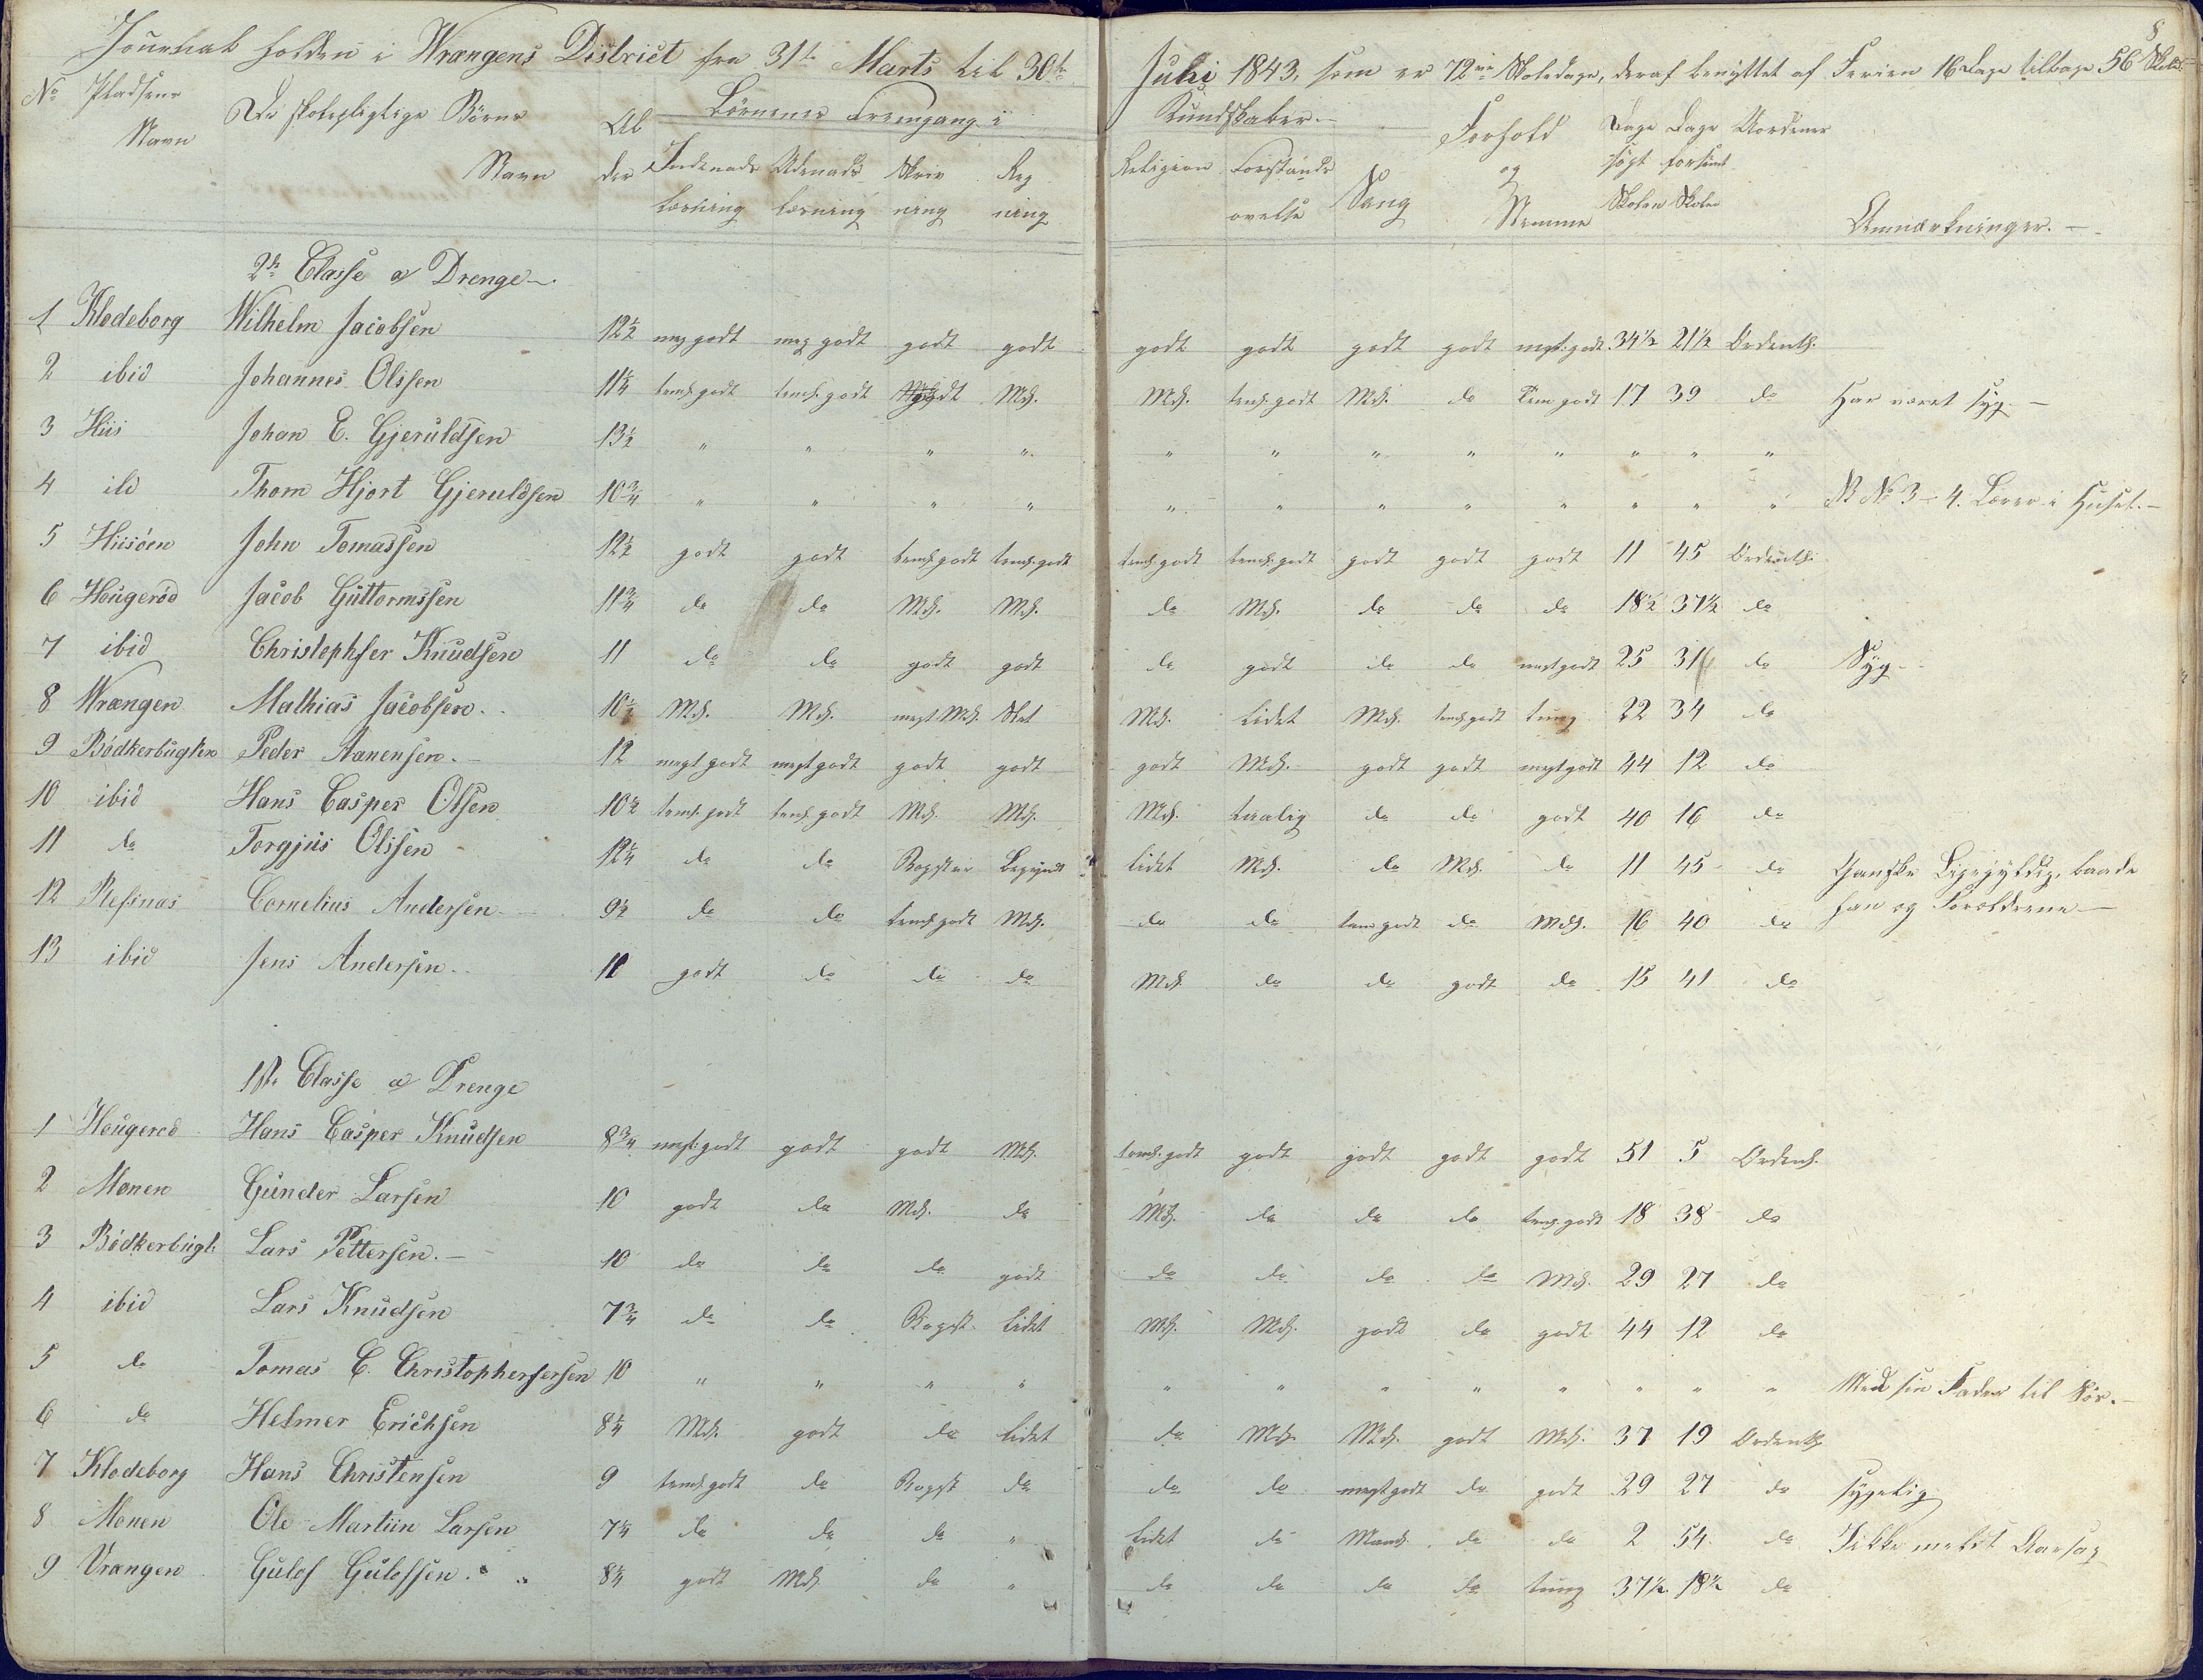 8
Journal holden i Wrangens District fra 31te Marts til 30te Juli 1843, som er 72 Skoledage, deraf benyttet af Ferien 16 Dage tilbage 56 Skoled.
No Pladsens Navn De skolepligtige Børns Navn Alder Børnenes Fremgang i Kundskaber. Forhold og Nemme Dage søgt Skolen Dage forsømt Skolen Anmærkninger.
Indenads Læsning Udenads Læsning Skrivning Regning Religion Forstands øvelse Sang
2de Classe a Drenge
1 Klodeborg Wilhelm Jacobsen 12½ meg godt meg godt godt godt godt godt godt godt megt. godt 34½ 21½ Ordentl.
2 ibid Johannes Olssen 11¼ teml. godt teml. godt godt Mdl. Mdl. teml. godt Mdl. do Tem godt 17 39 do Har været syg.
3 Hiis Johan E. Gjeruldsen 13½ " " " " " " " " " " " "
4 ibd Thom Hjort Gjeruldsen 10¾ " " " " " " " " " " " " NB No 3 - 4. Lærer i Huset.
5 Hiisöen John Tomassen 12½ godt godt teml. godt teml. godt teml. godt teml. godt godt godt godt 11 45 Ordentl.
6 Hougeröd Jacob Guttormssen 11¾ do do Mdl. Mdl. do Mdl. do do do 18½ 37½ do
7 ibid Christephfer Knudsen 11 do do godt godt do godt do do megt godt 25 31 do Syg
8 Wrængen Mathias Jacobsen 10½ Mdl. Mdl. megt Mdl. Slet Mdl. Lidet Mdl. teml. godt tung 22 34 do
9 Bödkerbugten Peder Aanensen. 12 megt godt megt godt godt godt godt Mdl. godt godt megt godt 44 12 do
10 ibid Hans Casper Olsen 10½ teml. godt teml. godt Mdl. Mdl. Mdl. taalig do do godt 40 16 do
11 do Torgjus Olssen 12¼ do do Bogstav Begyndt lidet Mdl. do Mdl. do 11 45 do Ganske Ligegyldig, baade
12 Refsnæs Cornelius Andersen 9½ do do teml. godt Mdl. do do tem godt do Mdl. 16 40 do han og Forældrene
13 ibid Jens Andersen 11 godt do do do Mdl. do do godt do 15 41 do
1ste Classe a Drenge
1 Hougeröd Hans Casper Knudsen 8¾ megt. godt godt godt Mdl. teml. godt godt godt godt godt 51 5 Ordentl.
2 Monen Gunder Larsen 10 godt do Mdl. do Mdl. do do do teml. godt 18 38 do
3 Bödkerbugt. Lars Pettersen. 10 do do do godt do do do do Mdl. 29 27 do
4 ibid Lars Knudsen 7¾ do do Bogst. Lidet Mdl. Mdl. godt do godt 44 12 do
5 do Tomas C. Christophersersen 10 " " " " " " " " " " " " Med sin Fader til Sös.
6 do Helmer Erichsen 8¼ Mdl. godt do lidet do Mdl. Mdl. godt Mdl. 37 19 Ordentl.
7 Klodeborg Hans Christensen 9 teml. godt do Bogst do do do megt godt do godt 29 27 do sygelig
8 Monen Ole Martiin Larsen 7¼ do do do " Lidet do Maadl. do do 2 54 do Ikke meldt Aarsag
9 Vrangen Gulof Gulofsen. 8¼ godt Mdl. do " do do do do tung 37½ 18½ do